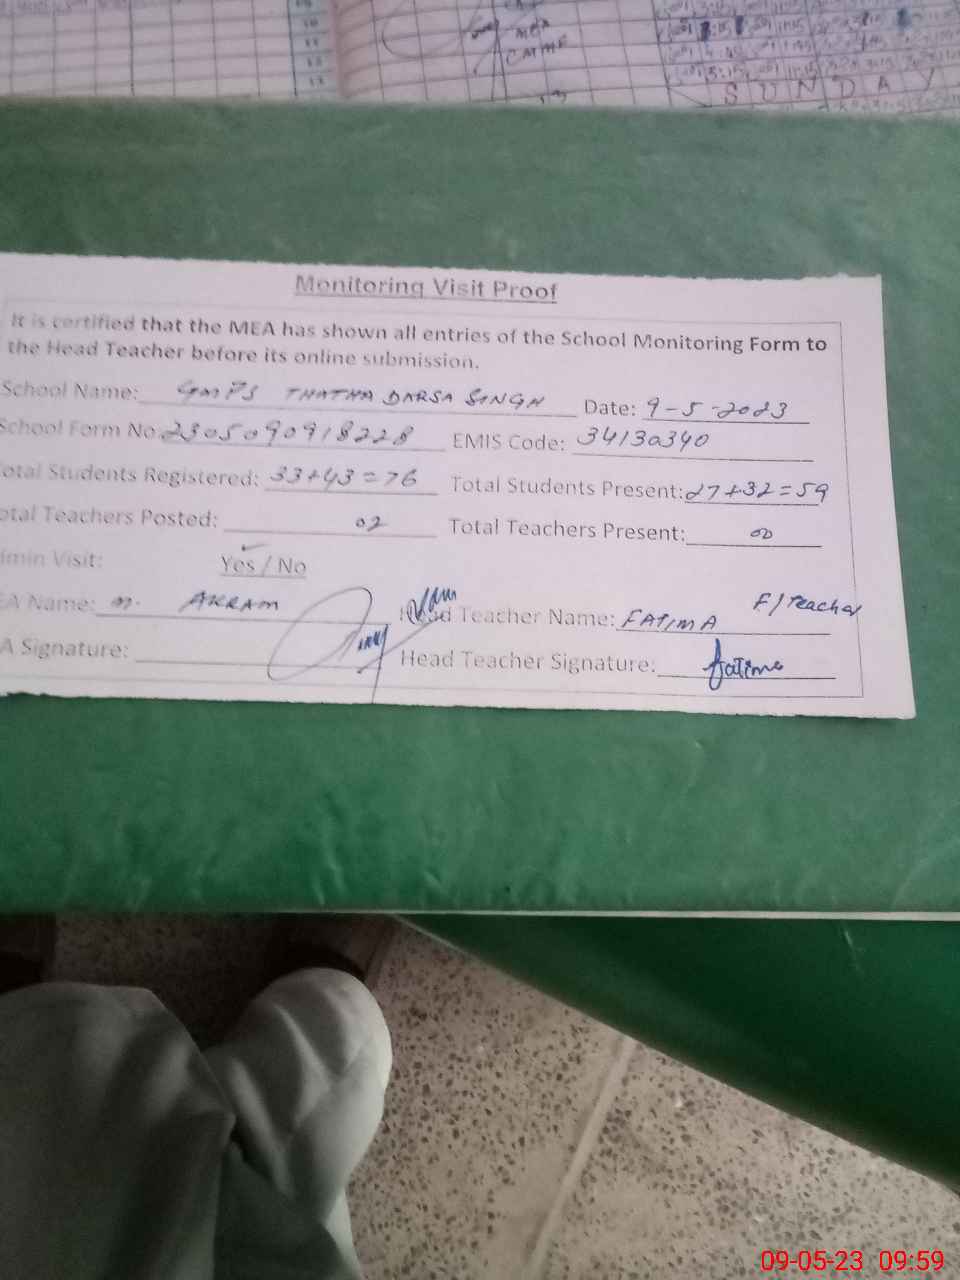 MEA
SUNDAY
Monitoring Visit Proof
It is certified that the MEA has shown all entries of the School Monitoring Form to
the Head Teacher before its online submission.
School Name: GMPS THATHA DARSA SINGH Date: 9-5-2023
School Form No 2305090918228 EMIS Code: 34130340
otal Students Registered: 33+43=76 Total Students Present: 27+32=59
otal Teachers Posted: 02 Total Teachers Present: 00
dmin Visit: Yes / No
EA Name: M. AKRAM Head Teacher Name: FATIMA F/Teacher
A Signature: Head Teacher Signature: fatima
09-05-23 09:59